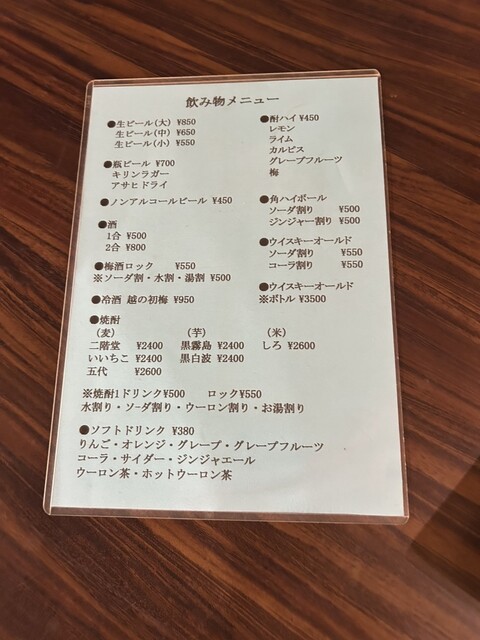 飲み物メニュー
●生ビール(大) ¥850
生ビール(中) ¥650
生ビール(小) ¥550
●瓶ビール ¥700
キリンラガー
アサヒドライ
●ノンアルコールビール ¥450
●酒
1合 ¥500
2合 ¥800
●梅酒ロック ¥550
※ソーダ割・水割・湯割 ¥500
●冷酒 越の初梅 ¥950
●酎ハイ ¥450
レモン
ライム
カルピス
グレープフルーツ
梅
●角ハイボール
ソーダ割り ¥500
ジンジャー割り ¥500
●ウイスキーオールド
ソーダ割り ¥550
コーラ割り ¥550
●ウイスキーオールド
※ボトル ¥3500
●焼酎
(麦) (芋) (米)
二階堂 ¥2400 黒霧島 ¥2400 しろ ¥2600
いいちこ ¥2400 黒白波 ¥2400
五代 ¥2600
※焼酎1ドリンク¥500 ロック¥550
水割り・ソーダ割り・ウーロン割り・お湯割り
●ソフトドリンク ¥380
りんご・オレンジ・グレープ・グレープフルーツ
コーラ・サイダー・ジンジャエール
ウーロン茶・ホットウーロン茶